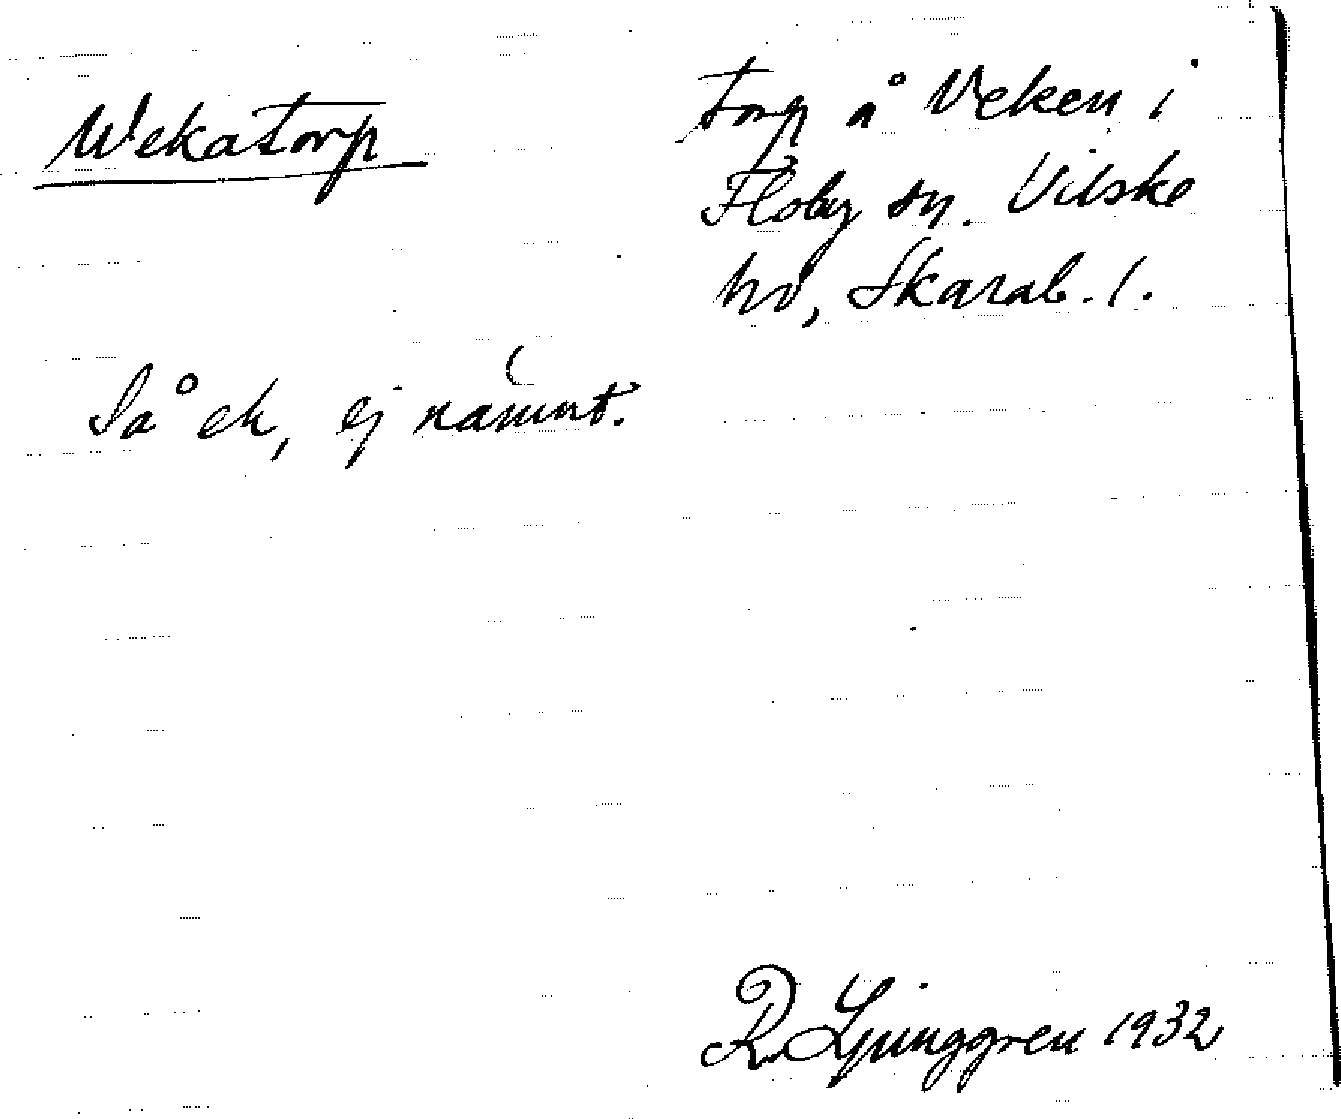 Wekatorp
torp å Veken i
Floby sn. Vilske
hd, Skarab. l.
Så ek, ej nämnt.
R. Ljunggren 1932